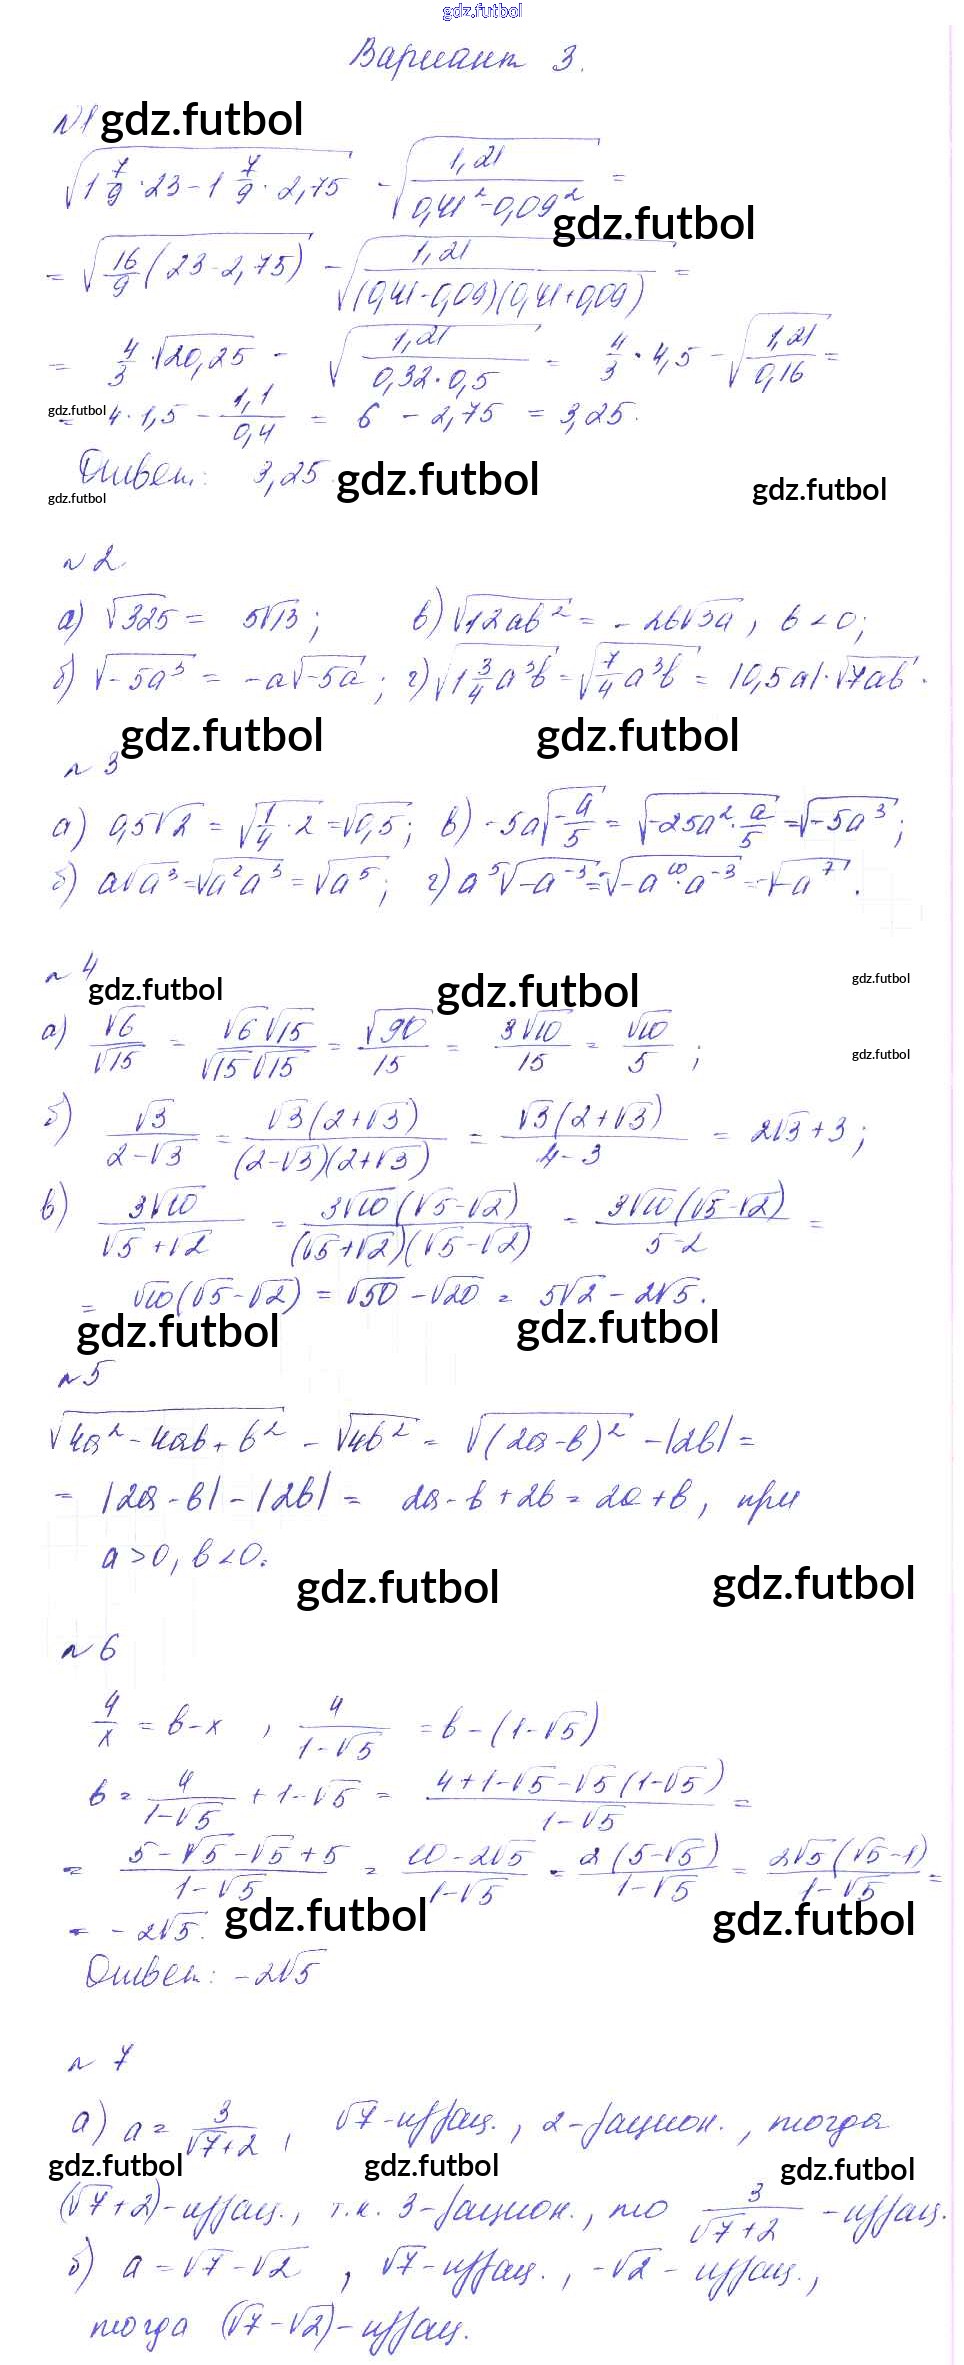 gdz.futbol
Вариант 3.
№1 gdz.futbol
√(1 7/9 · 23 - 1 7/9 · 2,75) - √(1,21/(0,41² - 0,09²)) =
gdz.futbol
= √(16/9 (23 - 2,75)) - √(1,21/((0,41-0,09)(0,41+0,09))) =
= 4/3 · √20,25 - √(1,21/(0,32·0,5)) = 4/3 · 4,5 - √(1,21/0,16) =
gdz.futbol
= 4 · 1,5 - 1,1/0,4 = 6 - 2,75 = 3,25.
Ответ: 3,25. gdz.futbol gdz.futbol
gdz.futbol
№2
а) √325 = 5√13; в) √(12ab²) = -2b√3a, b<0;
б) √(-5a³) = -a√(-5a); г) √(1 3/4 a³b) = √(7/4 a³b) = |0,5a|·√(7ab).
gdz.futbol gdz.futbol
№3
а) 0,5√2 = √(1/4 · 2) = √0,5; в) -5a√(-a/5) = √(-25a² · a/5) = √(-5a³);
б) a√a³ = √(a²a³) = √a⁵; г) a⁵√(-a⁻³) = -√(-a¹⁰·a⁻³) = -√(-a⁷).
№4
gdz.futbol gdz.futbol gdz.futbol
а) √6/√15 = √6√15/(√15√15) = √90/15 = 3√10/15 = √10/5;
gdz.futbol
б) √3/(2-√3) = √3(2+√3)/((2-√3)(2+√3)) = √3(2+√3)/(4-3) = 2√3+3;
в) 3√10/(√5+√2) = 3√10(√5-√2)/((√5+√2)(√5-√2)) = 3√10(√5-√2)/(5-2) =
= √10(√5-√2) = √50 - √20 = 5√2 - 2√5.
gdz.futbol gdz.futbol
№5
√(4a² - 4ab + b²) - √(4b²) = √((2a-b)²) - |2b| =
= |2a-b| - |2b| = 2a-b+2b = 2a+b, при
a>0, b<0.
gdz.futbol gdz.futbol
№6
4/x = b-x, 4/(1-√5) = b-(1-√5)
b = 4/(1-√5) + 1-√5 = (4+1-√5-√5(1-√5))/(1-√5) =
= (5-√5-√5+5)/(1-√5) = (10-2√5)/(1-√5) = 2(5-√5)/(1-√5) = 2√5(√5-1)/(1-√5) =
= -2√5. gdz.futbol gdz.futbol
Ответ: -2√5
№7
а) a = 3/(√7+2), √7-иррац., 2-рацион., тогда
gdz.futbol gdz.futbol gdz.futbol
(√7+2)-иррац., т.к. 3-рацион., то 3/(√7+2) - иррац.
б) a = √7-√2, √7-иррац., -√2 - иррац.,
тогда (√7-√2)-иррац.